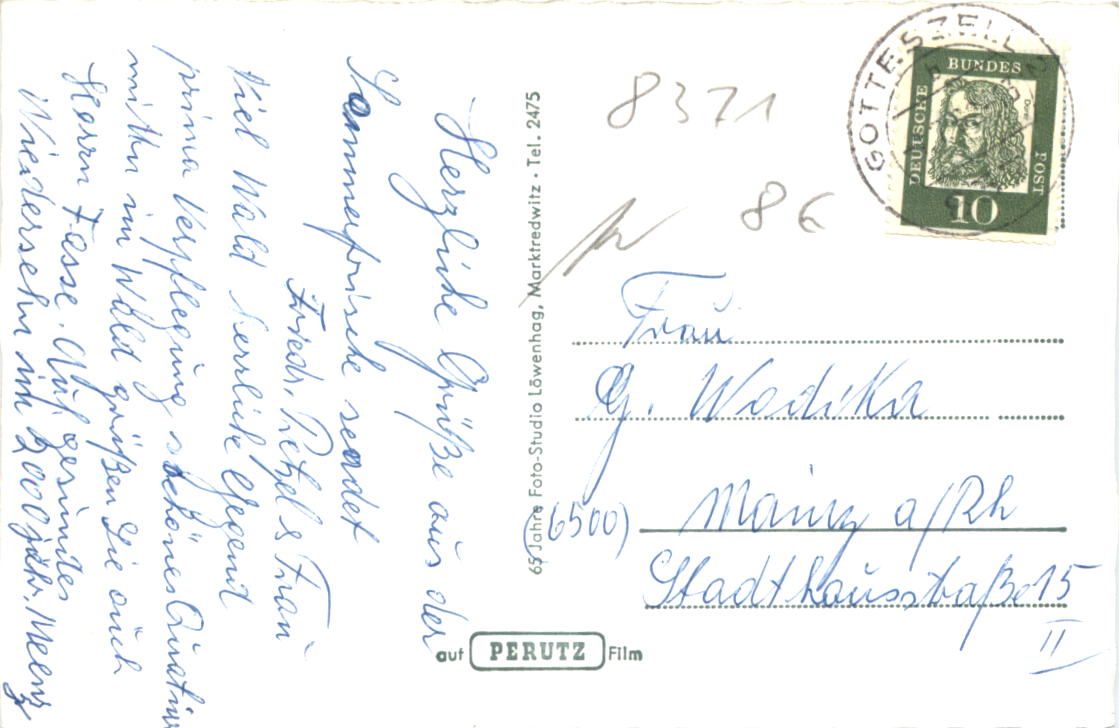 Herzliche Grüße aus der
Sommerfrische sendet
Friedr. Petzel & Frau
Viel Wald herrliche Gegend
prima Verpflegung schönes Quatier
mithin im Wald grüßen Sie auch
Herrn Fasse. Auf gesundes
Niedersehn im 2000 jähr. Meenz
65 Jahre Foto-Studio Löwenhag, Marktredwitz · Tel. 24/75
auf PERUTZ Film
8371
86
GOTTESZELL
DEUTSCHE
BUNDES
POST
Dürer
10
Frau
G. Wodika
(6500) Mainz a/Rh
Stadthausstraße 15
II